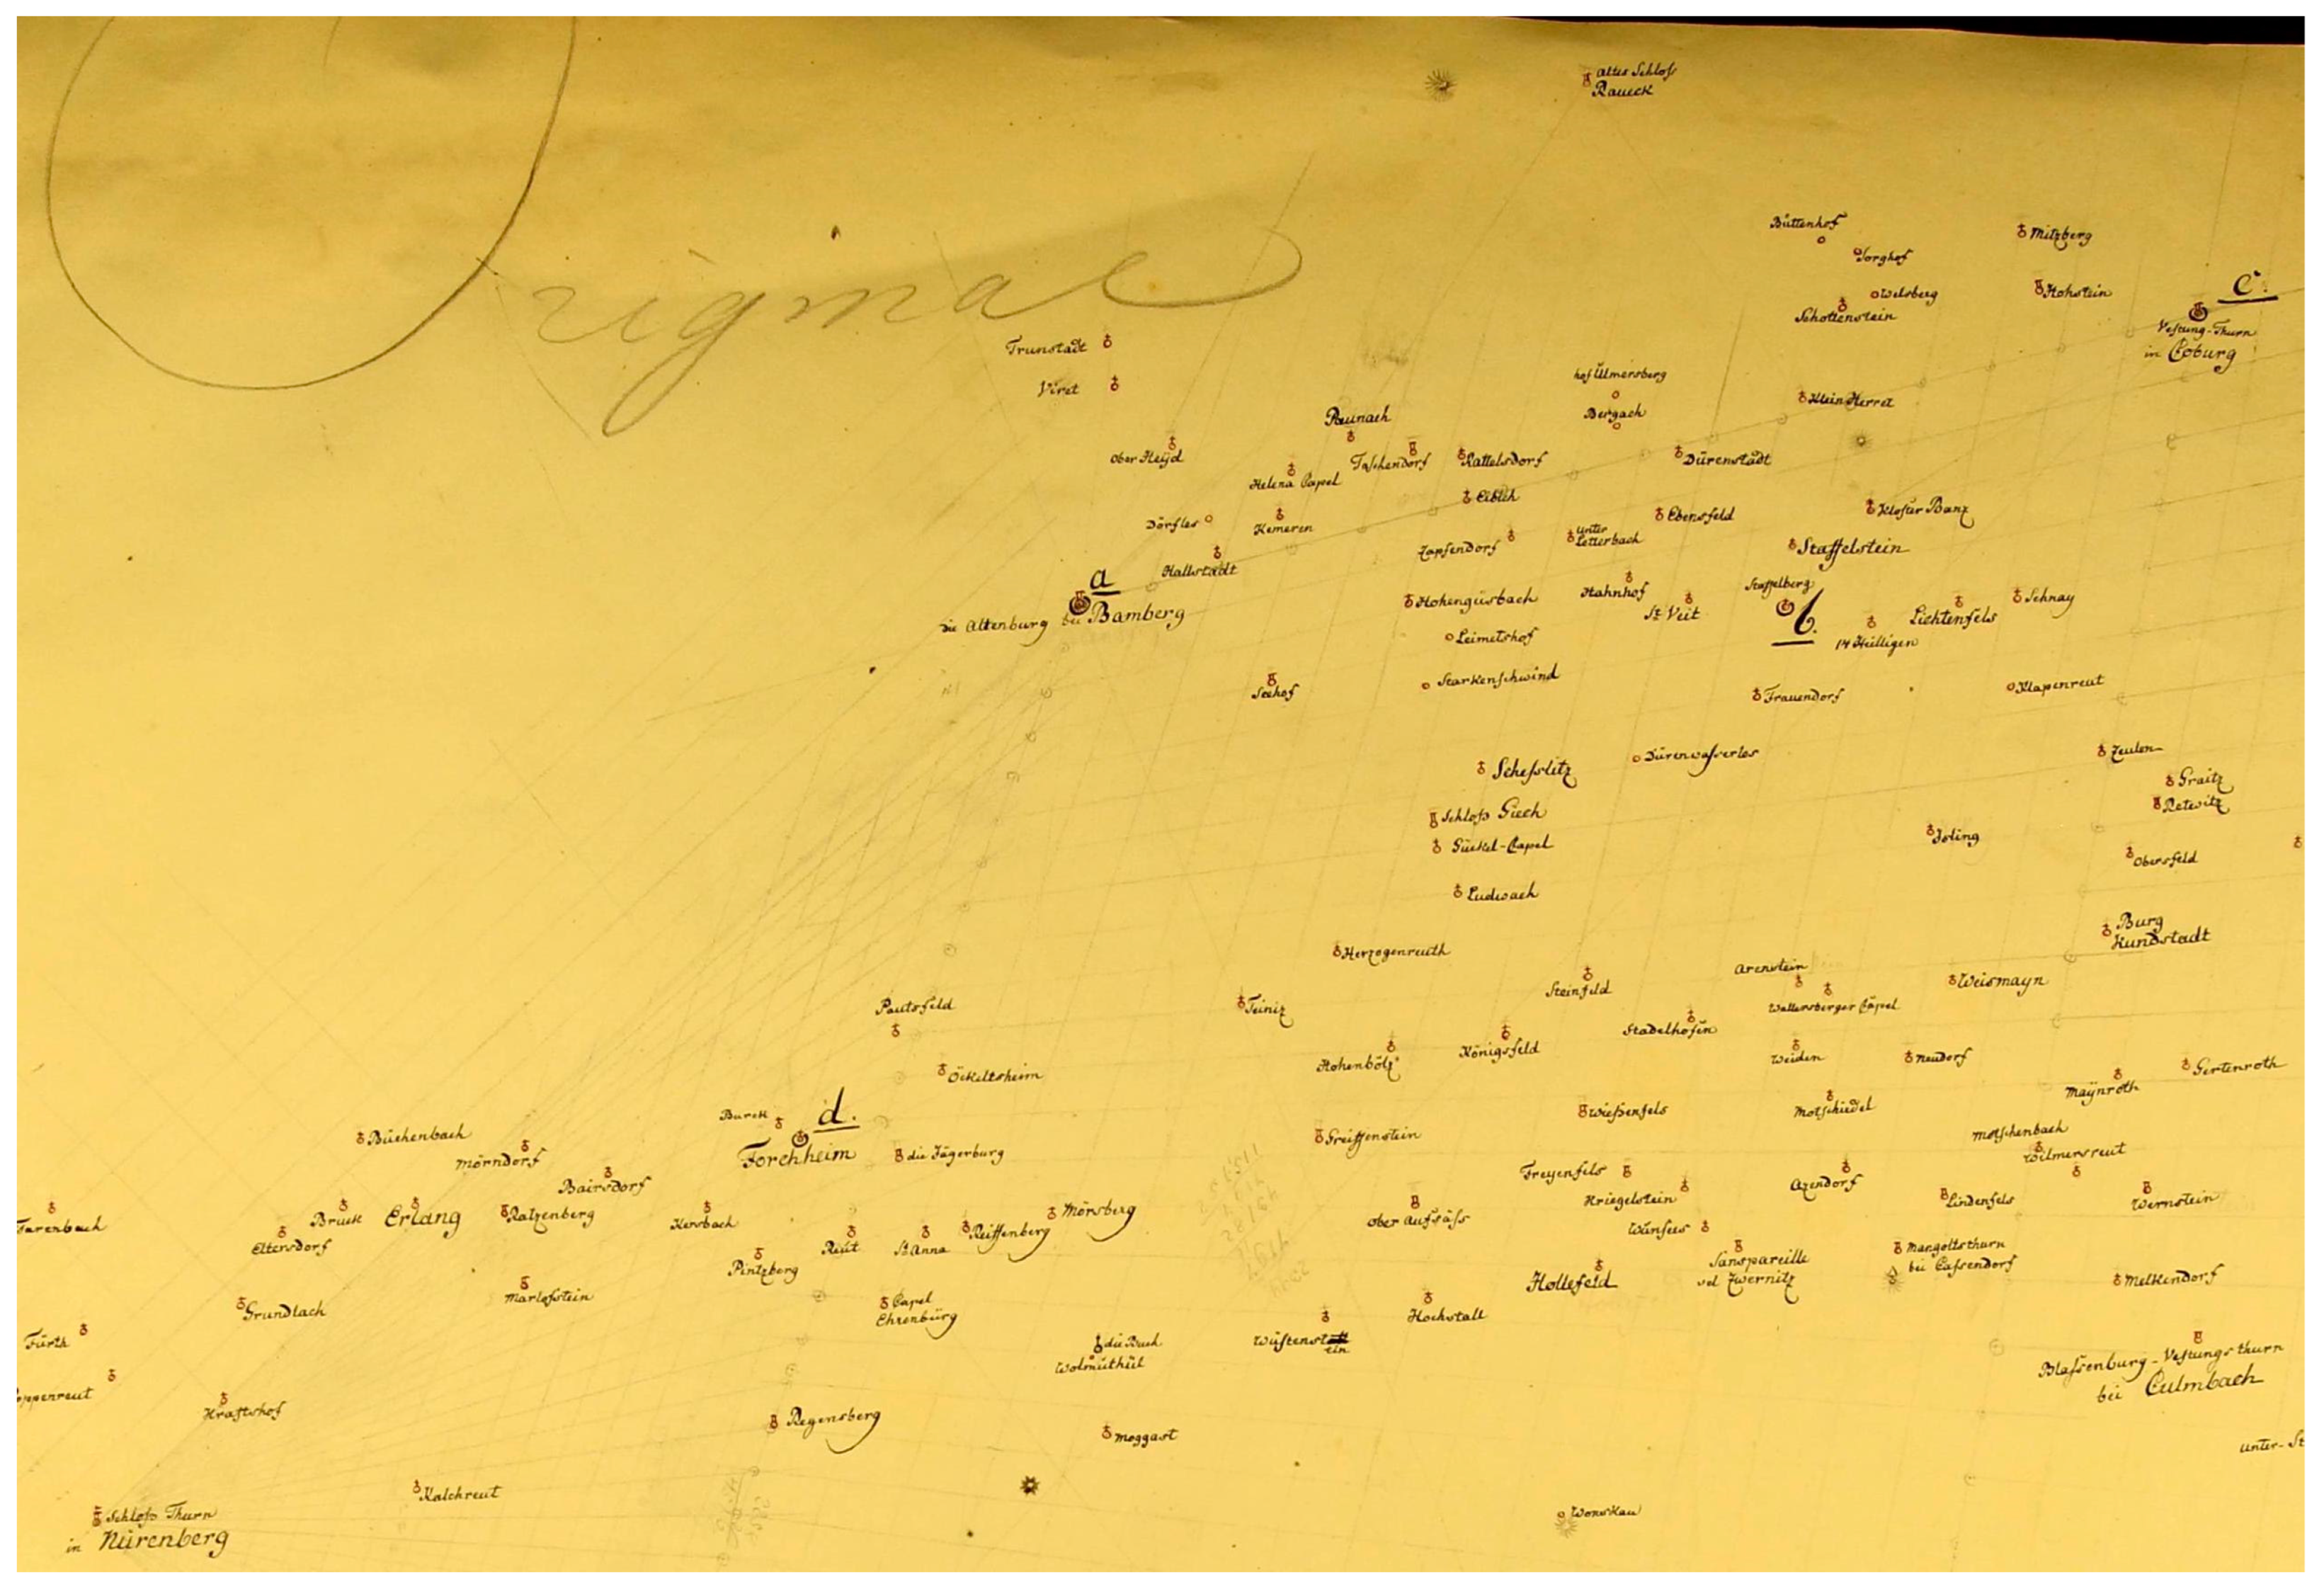 Altes Schloß
Raueck
Original
Büttenhof
Mitzberg
Sorghof
Welsberg
Hohstein
c.
Schottenstein
Vestung-Thurn
in Coburg
Trunstadt
Viret
hof Ülmersberg
Bergach
Klein Herret
Baunach
Ober Heÿd
Helena Capel
Taschendorf
Rattelsdorf
Dürenstadt
Eblich
Dörfles
Kemeren
Ebensfeld
Kloster Banz
Zapfendorf
unter
Letterbach
Staffelstein
Hallstadt
a
die Altenburg bei Bamberg
Hohengüsbach
Hahnhof
St. Veit
Staffelberg
b.
14 Heilligen
Lichtenfels
Schnay
Leimetshof
Seehof
Starkenschwind
Frauendorf
Klapenreut
Scheßlitz
Dürenwasserlos
Zeulen
Graitz
Retwitz
Schloß Giech
Gückel-Capel
Isling
Obersfeld
Ludwach
Burg
Kundstadt
Herzogenreuth
Steinfeld
Arenstein
Weismayn
Wallersberger Capel
Pautsfeld
Teiniz
Stadelhofen
Hohenbölz
Königsfeld
Weiden
Neudorf
Gertenroth
Öckeltsheim
Maÿnroth
Burck
d.
Forchheim
die Jägerburg
Greiffenstein
Wießenfels
Motschiedel
Motschenbach
Wilmersreut
Büchenbach
Mörndorf
Bairsdorf
Freyenfels
Kriegelstein
Azendorf
Lindenfels
Wernstein
Farenbach
Bruck
Erlang
Ratzenberg
Kersbach
Eltersdorf
Reut
St. Anna
Reiffenberg
Mörsberg
Ober Aufsäss
Wünsees
Pintzberg
Sanspareille
vel Zwernitz
Mangoltsthurn
bei Casendorf
Hollefeld
Melkendorf
Marlofstein
Grundlach
Capel
Ehrenbürg
Hochstall
Fürth
die Buch
Wolmuthül
Wüstenst
ein
Blassenburg-Vestungsthurn
bei Culmbach
oppenreut
Kraftshof
Regensberg
Moggast
unter-St
Kalchreut
Schloß Thurn
in Nürenberg
Wonskau